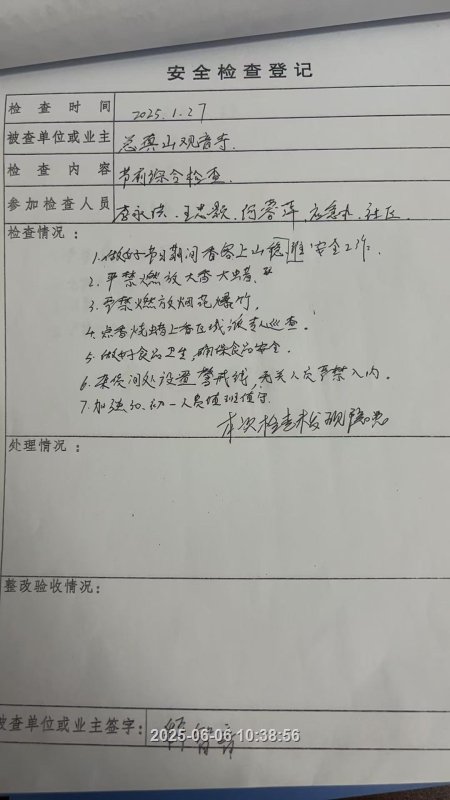 安全检查登记
检查时间 2025.1.27
被查单位或业主 总真山观音寺.
检查内容 节前综合检查.
参加检查人员 李永洪. 王思颖. 何蓉萍, 应急办. 社区.
检查情况：
1.做好节日期间香客上山稳 安全工作.
2.严禁燃放大香大蜡.
3.严禁燃放烟花爆竹.
4.点香烧蜡上香区域派专人巡查.
5.做好食品卫生,确保食品安全.
6.柴房间处设置警戒线,无关人员严禁入内.
7.加强30.初一人员值班值守.
本次检查未发现隐患
处理情况：
整改验收情况:
被查单位或业主签字:
2025-06-06 10:38:56